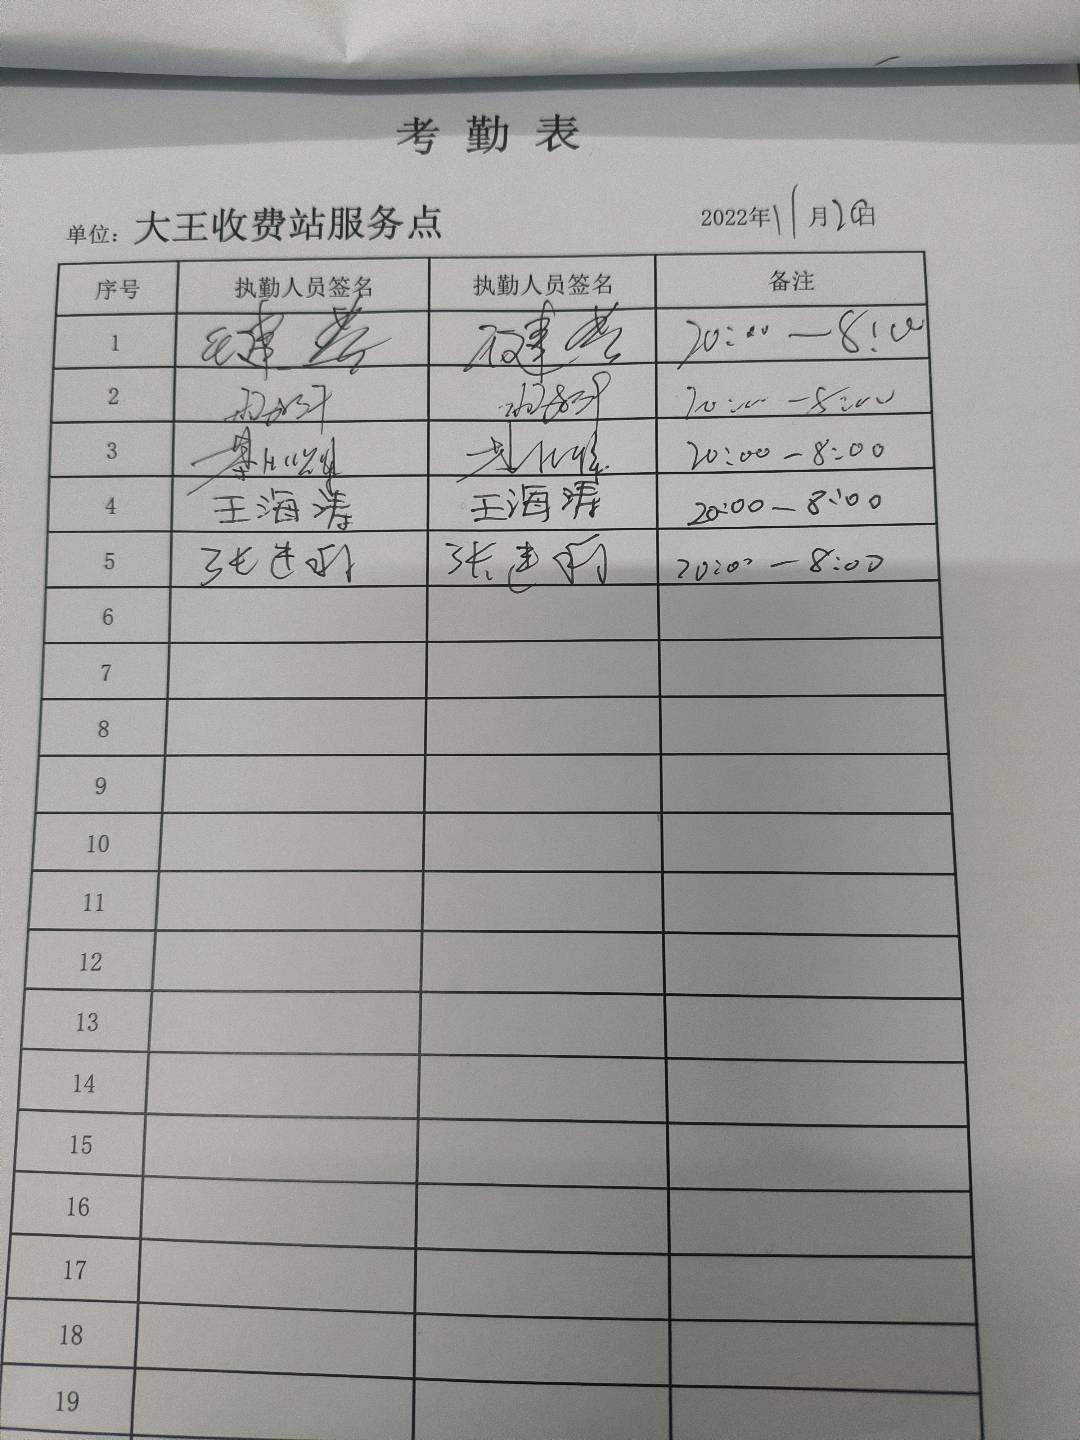 考勤表
单位：大王收费站服务点 2022年11月20日
序号 执勤人员签名 执勤人员签名 备注
1 20:00—8:00
2 20:00—8:00
3 20:00—8:00
4 王海涛 王海涛 20:00—8:00
5 张建利 张建利 20:00—8:00
6
7
8
9
10
11
12
13
14
15
16
17
18
19